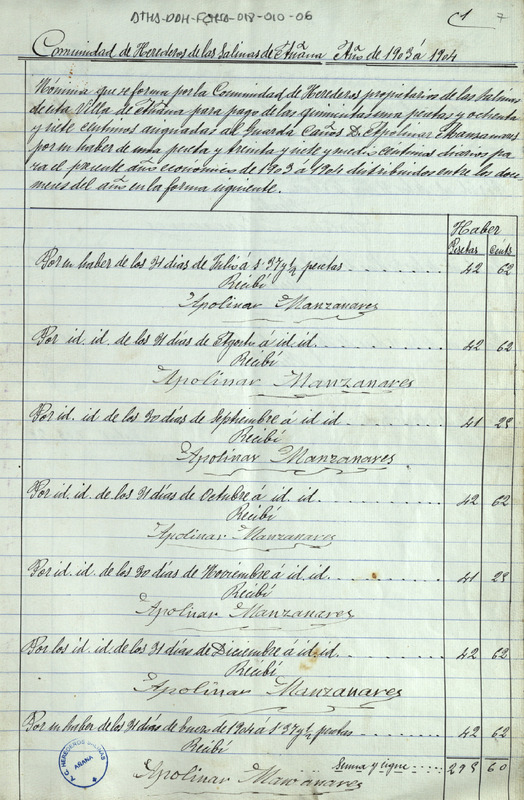 DTHS-DDH-FCHSA-018-010-06
C1 7
Comunidad de Herederos de las Salinas de Añana Año de 1903 á 1904
Nómina que se forma por la Comunidad de Herederos propietarios de las Salinas
de esta Villa de Añana para pago de las quinientas una pesetas y ochenta
y siete céntimos asignadas al Guarda Caños Dn Apolinar Manzanares
por su haber de una peseta y treinta y siete y medio céntimos diarios pa
ra el presente año económico de 1903 á 1904 distribuidos entre los doce
meses del año en la forma siguiente.
Haber
Pesetas cents
Por su haber de los 31 días de Julio á 1'37 y ½ pesetas 42 62
Recibí
Apolinar Manzanares
Por id. id. de los 31 días de Agosto á id. id. 42 62
Recibí
Apolinar Manzanares
Por id. id. de los 30 días de Septiembre á id. id. 41 25
Recibí
Apolinar Manzanares
Por id. id. de los 31 días de Octubre á id. id. 42 62
Recibí
Apolinar Manzanares
Por id. id. de los 30 días de Noviembre á id. id. 41 25
Recibí
Apolinar Manzanares
Por los id. id. de los 31 días de Diciembre á id. id. 42 62
Recibí
Apolinar Manzanares
Por su haber de los 31 días de Enero de 1904 á 1'37 y ½ pesetas 42 62
Recibí
Suma y sigue 295 60
Apolinar Manzanares
HEREDEROS SALINAS
AÑANA